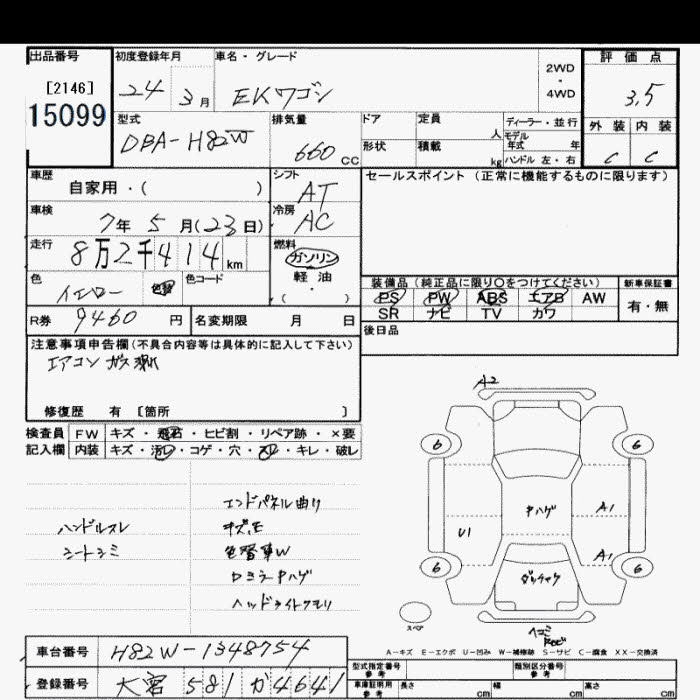 出品番号 初度登録年月 車名・グレード 2WD ・ 4WD 評価点
[2146] 24 3月 EKワゴン 3.5
15099 型式 排気量 ドア 定員 人 ディーラー・並行 外装 内装
DBA-H82W 660cc 形状 積載 kg モデル年式 年 ハンドル 左・右 C C
車歴 自家用・( ) シフト AT セールスポイント(正常に機能するものに限ります)
車検 7年5月(23日) 冷房 AC
走行 8万2千414km 燃料 ガソリン 軽油 ・( )
色 イエロー 色替 色コード 装備品(純正品に限り○をつけてください) 新車保証書
PS PW ABS エアB AW 有・無
R券 9460円 名変期限 月 日 SR ナビ TV カワ
注意事項申告欄(不具合内容等は具体的に記入して下さい) 後日品
エアコン ガス漏れ
修復歴 有 [箇所 ]
検査員 FW キズ・飛石・ヒビ割・リペア跡・×要
記入欄 内装 キズ・汚レ・コゲ・穴・スレ・キレ・破レ
A2
6 6
エンドパネル曲り
ハンドルスレ キズ、E
シートシミ 色替車W
ドミラーPハゲ
ヘッドライトクモリ
Pハゲ A1
U1
A1
6 ダッチャク 6
スペア ヘコミ
A-キズ E-エクボ U-凹み W-補修跡 S-サビ C-腐食 XX-交換済
車台番号 H82W-1348754 型式指定番号 参考 類別区分番号 参考
登録番号 大宮 581 か 4641 車庫証明用 参考 長さ cm 幅 cm 高さ cm